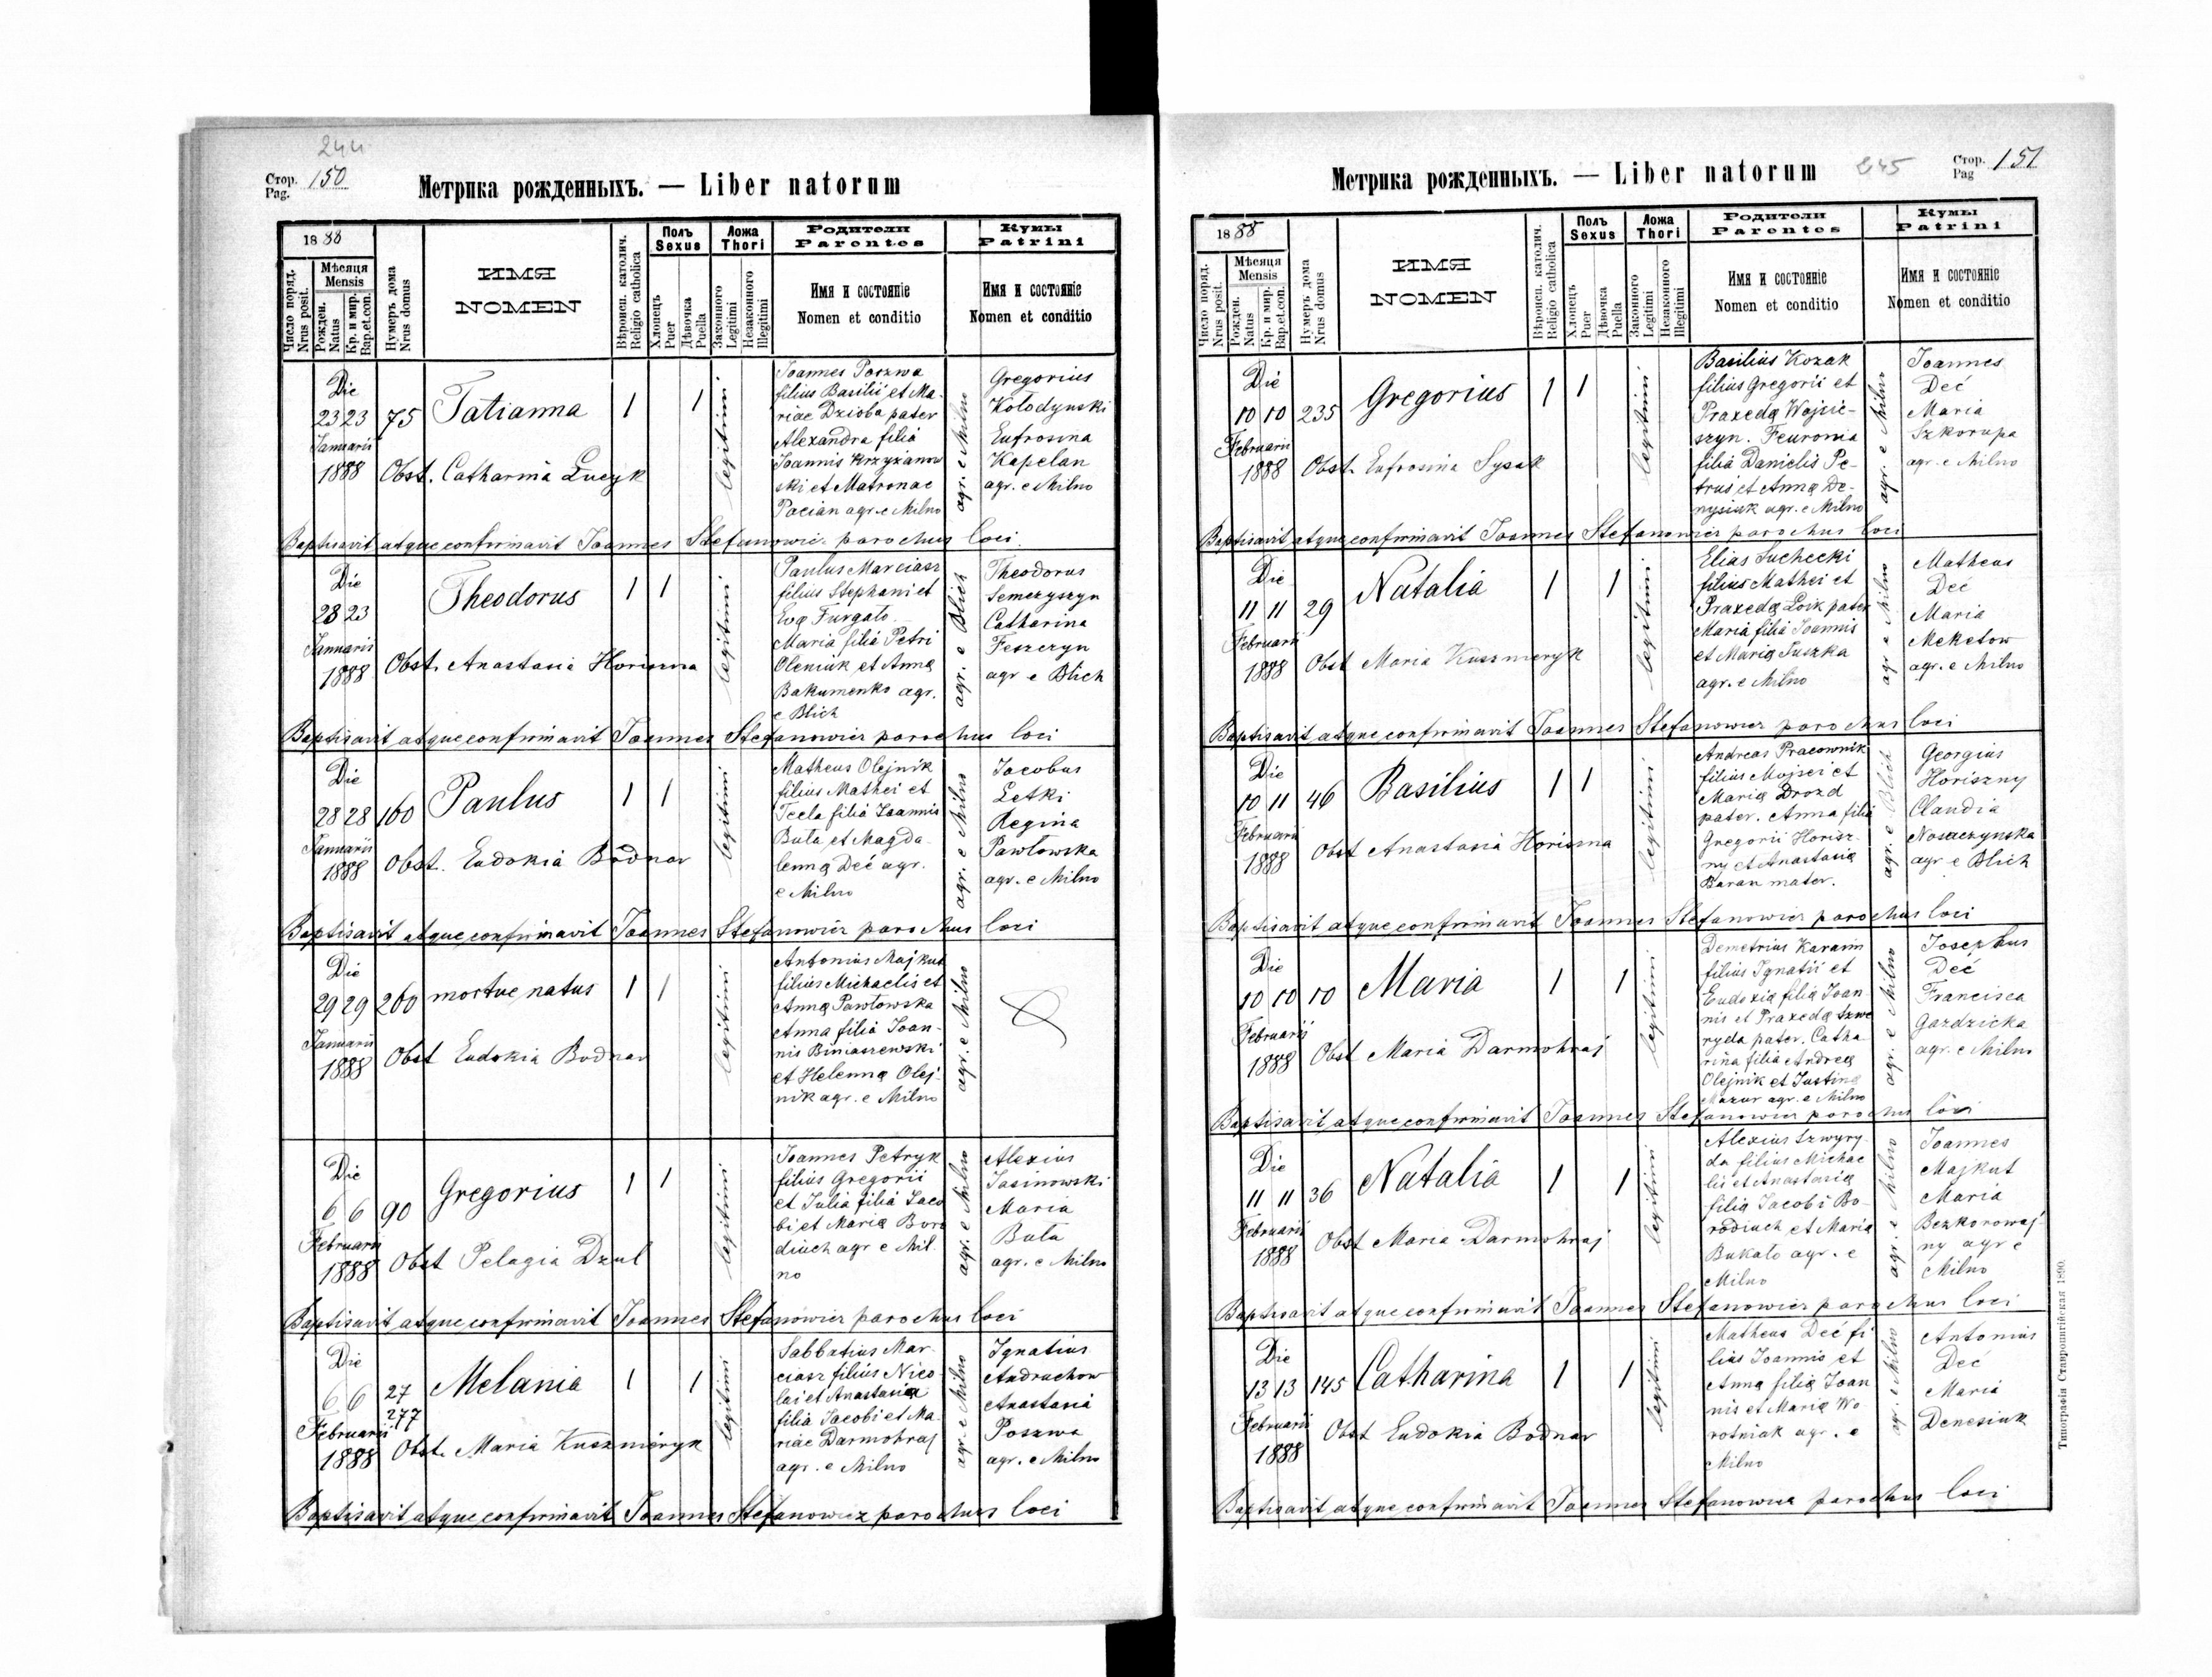 244
Стор. Pag. 150
Метрика рожденныхъ. — Liber natorum
1888
Число поряд. Nrus posit.
Мѣсяця Mensis
Рожден. Natus
Кр. и мир. Bap.et.con.
Нумеръ дома Nrus domus
ИМЯ
NOMEN
Вѣроисп. католич. Religio catholica
Полъ Sexus
Хлопецъ Puer
Дѣвочка Puella
Ложа Thori
Законного Legitimi
Незаконного Illegitimi
Родители
Parentes
Имя и состоянie
Nomen et conditio
Кумы
Patrini
Имя и состоянie
Nomen et conditio
Die
23 23 75 Tatianna 1 1
Januarii
1888 Obst. Catharina Lucyk
legitimi
Joannes Poszwa
filius Basilii et Ma-
riae Dzioba pater
Alexandra filia
Joannis Krzyżanow
ski et Matronae
Pacian agr. e Milno
agr. e Milno
Gregorius
Kolodynski
Eufrosina
Kapelan
agr. e Milno
Baptisavit atque confirmavit Joannes Stefanowicz parochus loci
Die
28 23 Theodorus 1 1
Januarii
1888 Obst. Anastasia Horisna
legitimi
Paulus Marciasz
filius Stephani et
Eva Furgato
Maria filia Petri
Oleniuk et Anna
Bakumenko agr.
e Blich
agr. e Blich
Theodorus
Semczyszyn
Catharina
Feszczyn
agr e Blich
Baptisavit atque confirmavit Joannes Stefanowicz parochus loci
Die
28 28 160 Paulus 1 1
Januarii
1888 Obst. Eudokia Bodnar
legitimi
Matheus Olejnik
filius Mathei et
Tecla filia Joannis
Buta et Magda
lena Deć agr.
e Milno
agr. e Milno
Jacobus
Letki
Regina
Pawłowska
agr. e Milno
Baptisavit atque confirmavit Joannes Stefanowicz parochus loci
Die
29 29 260 mortue natus 1 1
Januarii
1888 Obst Eudokia Bodnar
legitimi
Antonius Majkut
filius Michaelis et
Anna Pawłowska
Anna filia Joan-
nis Biniaszewski
et Helenna Olej-
nik agr. e Milno
agr. e Milno
Die
6 6 90 Gregorius 1 1
Februarii
1888 Obst Pelagia Dzul
legitimi
Joannes Petryk
filius Gregorii
et Julia filia Jaco
bi et Maria Boro
diuch agr e Mil
no
agr. e Milno
Alexius
Jasinowski
Maria
Buta
agr. e Milno
Baptisavit atque confirmavit Joannes Stefanowicz parochus loci
Die
6 6 27 Melania 1 1
277
Februarii
1888 Obst. Maria Kuszmeryk
legitimi
Sabbatius Mar-
ciasz filius Nico
lai et Anastasia
filia Jacobi et Ma-
riae Darmohraj
agr. e Milno
agr. e Milno
Ignatius
Andruchow
Anastasia
Poszwa
agr. e Milno
Baptisavit atque confirmavit Joannes Stefanowicz parochus loci
Метрика рожденныхъ. — Liber natorum
245
Стор. Pag 151
1888
Число поряд. Nrus posit.
Мѣсяця Mensis
Рожден. Natus
Кр. и мир. Bap.et.con.
Нумеръ дома Nrus domus
ИМЯ
NOMEN
Вѣроисп. католич. Religio catholica
Полъ Sexus
Хлопецъ Puer
Дѣвочка Puella
Ложа Thori
Законного Legitimi
Незаконного Illegitimi
Родители
Parentes
Имя и состоянie
Nomen et conditio
Кумы
Patrini
Имя и состоянie
Nomen et conditio
Die
10 10 235 Gregorius 1 1
Februarii
1888 Obst. Eufrosina Sysak
legitimi
Basilius Kozak
filius Gregorii et
Praxeda Wojcie-
szyn. Feuronia
filia Danielis Pe-
trus et Anna De-
nysiuk agr. e Milno
agr. e Milno
Joannes
Deć
Maria
Szkorupa
agr. e Milno
Baptisavit atque confirmavit Joannes Stefanowicz parochus loci
Die
11 11 29 Natalia 1 1
Februarii
1888 Obst Maria Kuszmeryk
legitimi
Elias Suchecki
filius Mathei et
Praxeda Loik pater
Maria filia Joannis
et Maria Suszka
agr. e Milno
agr e Milno
Matheus
Deć
Maria
Meketow
agr. e Milno
Baptisavit atque confirmavit Joannes Stefanowicz parochus loci
Die
10 11 46 Basilius 1 1
Februarii
1888 Obst Anastasia Horisna
legitimi
Andreas Pracownik
filius Mojsei et
Maria Drozd
pater. Anna filia
Gregorii Horisz-
ny et Anastasia
Baran mater.
agr. e Blich
Georgius
Horiszny
Claudia
Nosaczynska
agr e Blich
Baptisavit atque confirmavit Joannes Stefanowicz parochus loci
Die
10 10 10 Maria 1 1
Februarii
1888 Obst Maria Darmohraj
legitimi
Demetrius Karavin
filius Ignatii et
Eudoxia filia Joan
nis et Praxeda Szwe
ryda pater. Catha
rina filia Andrea
Olejnik et Justina
Mazur agr. e Milno
agr. e Milno
Josephus
Deć
Francisca
Gazdzicka
agr. e Milno
Baptisavit atque confirmavit Joannes Stefanowicz parochus loci
Die
11 11 36 Natalia 1 1
Februarii
1888 Obst Maria Darmohraj
legitimi
Alexius Szwyry-
da filius Michae
lis et Anastasia
filia Jacobi Bo-
rodiuch et Maria
Bukato agr. e
Milno
agr. e Milno
Joannes
Majkut
Maria
Bezkorowaj-
ny agr e
Milno
Baptisavit atque confirmavit Joannes Stefanowicz parochus loci
Die
13 13 145 Catharina 1 1
Februarii
1888 Obst Eudokia Bodnar
legitimi
Matheus Deć fi
lius Joannis et
Anna filia Joan
nis et Maria Wo
rotniak agr. e
Milno
agr. e Milno
Antonius
Deć
Maria
Denesiuk
Baptisavit atque confirmavit Joannes Stefanowicz parochus loci
Типографія Ставропигійская 1890.